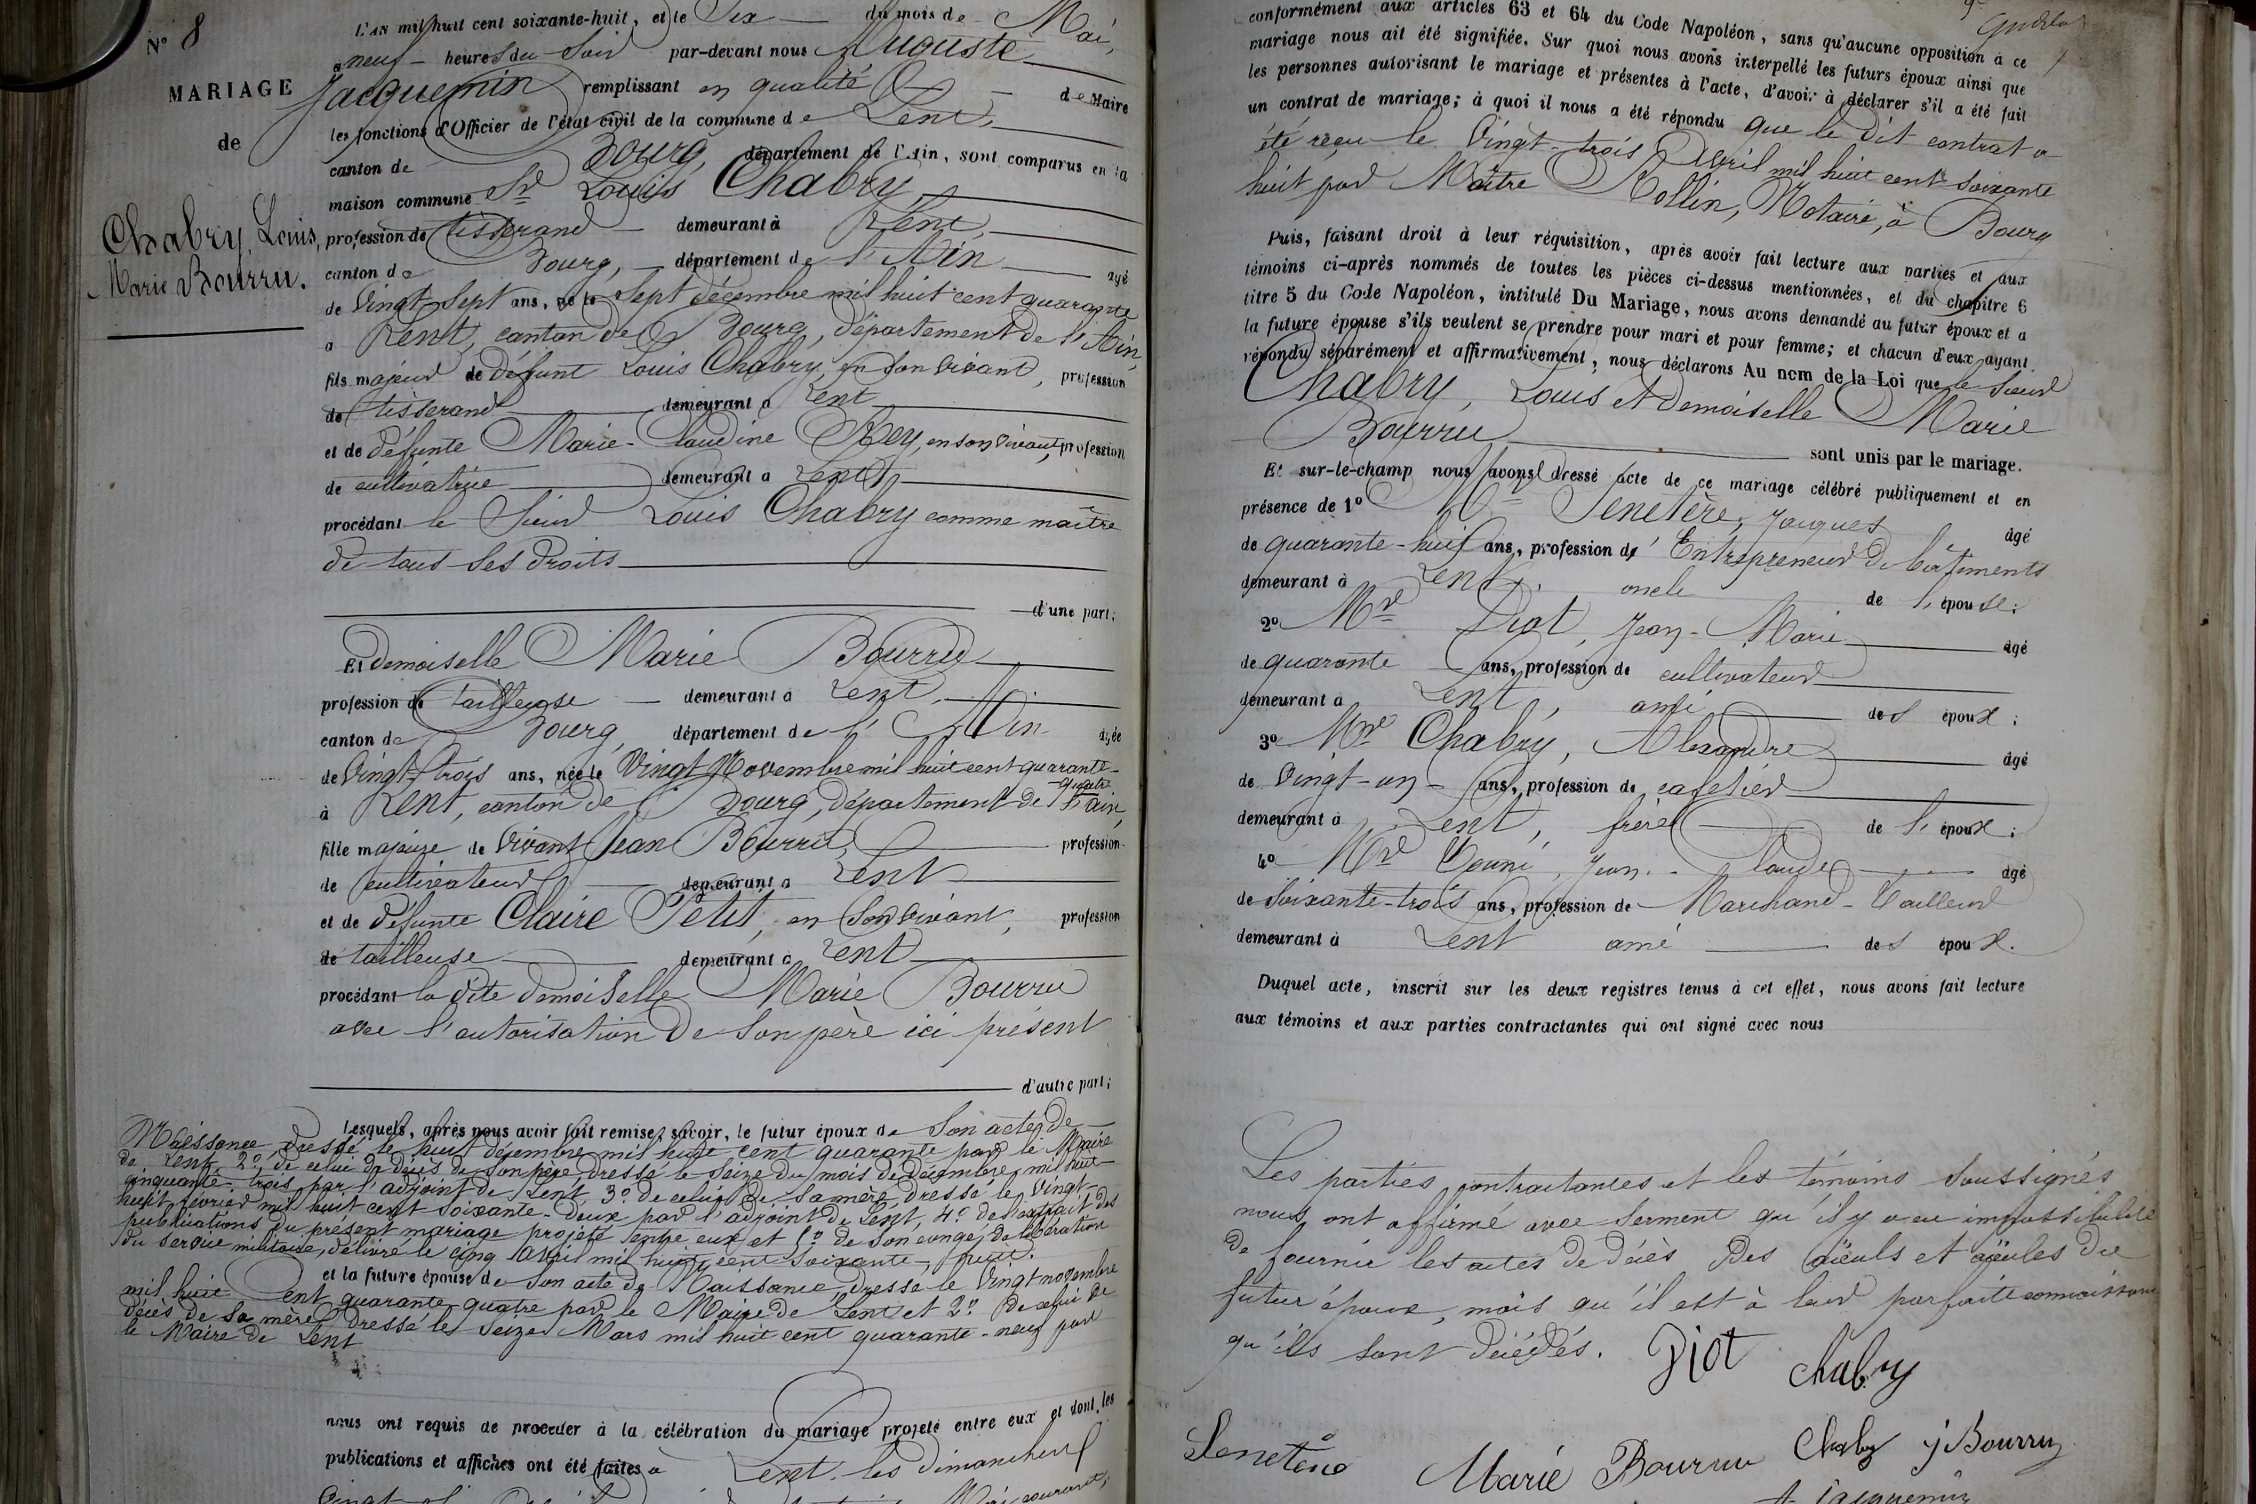 N° 8
MARIAGE
de
Chabry, Louis,
Marie Bourru.
L'AN mil huit cent soixante-huit, et le Six du mois de Mai,
à neuf heures du Soir par-devant nous Auguste
Jacquemin remplissant en qualité de Maire
les fonctions d'Officier de l'état civil de la commune de Lent,
canton de Bourg, département de l'Ain, sont comparus en la
maison commune Sr Louis Chabry,
profession de tisserand demeurant à Lent,
canton de Bourg, département de l'Ain âgé
de Vingt-Sept ans, né le Sept décembre mil huit cent quarante
à Lent, canton de Bourg, département de l'Ain,
fils majeur de défunt Louis Chabry, en son vivant, profession
de tisserand demeurant à Lent
et de défunte Marie-Claudine Rey, en son vivant, profession
de cultivatrice demeurant à Lent
procédant le Sieur Louis Chabry comme maître
de tous ses droits
d'une part;
Et demoiselle Marie Bourru
profession de tailleuse demeurant à Lent,
canton de Bourg, département de l'Ain âgée
de Vingt-trois ans, née le Vingt Novembre mil huit cent quarante-
quatre
à Lent, canton de Bourg, département de l'ain,
fille majeure de vivant Jean Bourru, profession
de cultivateur demeurant à Lent
et de défunte Claire Petit, en son vivant, profession
de tailleuse demeurant à Lent
procédant la dite demoiselle Marie Bourru
avec l'autorisation de son père ici présent
d'autre part;
Lesquels, après nous avoir fait remise, savoir, le futur époux de Son acte de
Naissance, dressé le huit décembre mil huit cent quarante par le Maire
de Lent, 2° de celui de décès de son père, dressé le seize du mois de décembre, mil huit
cinquante-trois par l'adjoint de Lent, 3° de celui de sa mère, dressé le Vingt-
huit février mil huit cent soixante-deux par l'adjoint de Lent, 4° de l'extrait des
publications du présent mariage projeté entre eux et de son congé de libération
du service militaire, délivré le cinq Avril mil huit cent soixante-huit.
et la future épouse de Son acte de Naissance, dressé le Vingt novembre
mil huit Cent quarante quatre par le Maire de Lent et 2° de celui de
décès de sa mère, dressé le Seize Mars mil huit cent quarante-neuf par
le Maire de Lent
nous ont requis de procéder à la célébration du mariage projeté entre eux et dont les
publications et affiches ont été faites à Lent, les dimanches
conformément aux articles 63 et 64 du Code Napoléon, sans qu'aucune opposition à ce
mariage nous ait été signifiée. Sur quoi nous avons interpellé les futurs époux ainsi que
les personnes autorisant le mariage et présentes à l'acte, d'avoir à déclarer s'il a été fait
un contrat de mariage; à quoi il nous a été répondu que le dit contrat a
été reçu le Vingt-trois Avril mil huit cent soixante
huit par Maître Rollin, Notaire, à Bourg
Puis, faisant droit à leur réquisition, après avoir fait lecture aux parties et aux
témoins ci-après nommés de toutes les pièces ci-dessus mentionnées, et du chapitre 6
titre 5 du Code Napoléon, intitulé Du Mariage, nous avons demandé au futur époux et a
la future épouse s'ils veulent se prendre pour mari et pour femme; et chacun d'eux ayant
répondu séparément et affirmativement, nous déclarons Au nom de la Loi que le Sieur
Chabry, Louis et Demoiselle Marie
Bourru
sont unis par le mariage.
Et sur-le-champ nous avons dressé acte de ce mariage célébré publiquement et en
présence de 1° Mr Senetère, Jacques âgé
de quarante-huit ans, profession d'Entrepreneur de bâtiments
demeurant à Lent, oncle de l'épouse;
2° Mr Diot, Jean-Marie âgé
de quarante ans, profession de cultivateur
demeurant à Lent, ami des époux;
3° Mr Chabry, Alexandre âgé
de Vingt-un ans, profession de cafetier
demeurant à Lent, frère de l'époux;
4° Mr Jean-Claude âgé
de soixante-trois ans, profession de Marchand-Tailleur
demeurant à Lent ami des époux.
Duquel acte, inscrit sur les deux registres tenus à cet effet, nous avons fait lecture
aux témoins et aux parties contractantes qui ont signé avec nous
Les parties contractantes et les témoins soussignés
nous ont affirmé avec serment qu'il y a eu impossibilité
de fournir les actes de décès des aïeuls et aïeules du
futur époux, mais qu'il est à leur parfaite connaissance
qu'ils sont décédés. Diot Chabry
Senetère Marie Bourru Chabry j Bourru